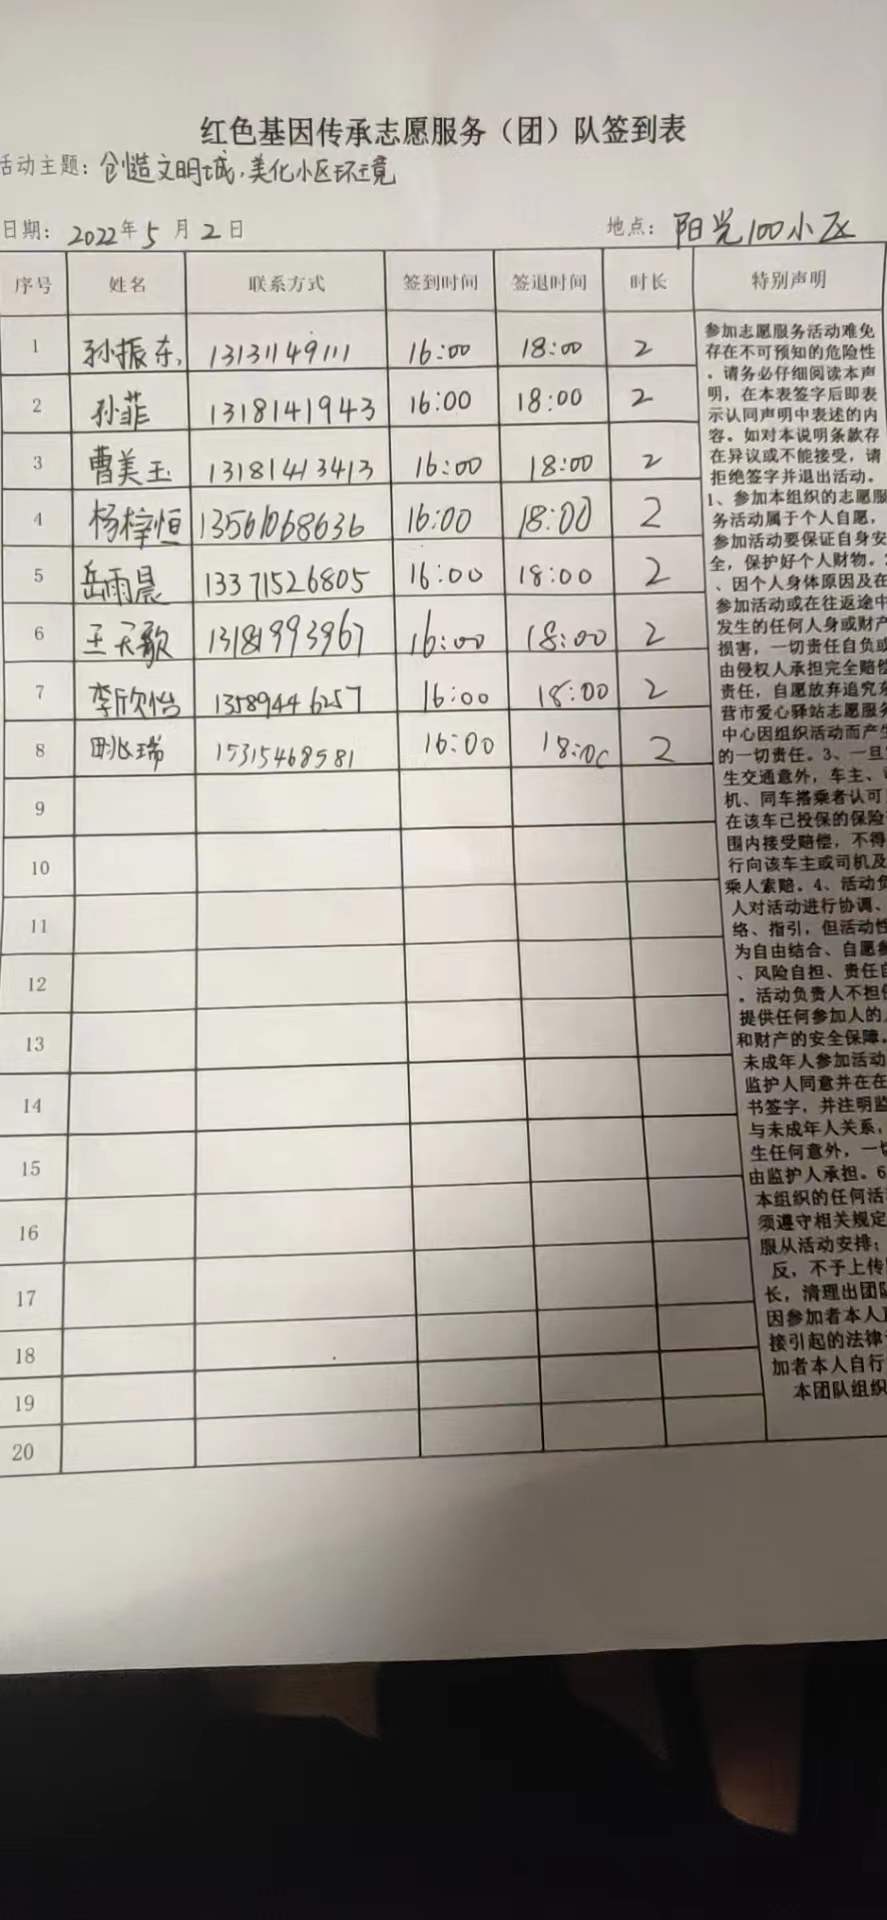 红色基因传承志愿服务（团）队签到表
活动主题：创造文明城,美化小区环境
日期：2022年5月2日 地点：阳光100小区
序号 姓名 联系方式 签到时间 签退时间 时长 特别声明
1 孙振东 13131149111 16:00 18:00 2
2 孙菲 1318141943 16:00 18:00 2
3 曹美玉 13181413413 16:00 18:00 2
4 杨梓恒 13561068636 16:00 18:00 2
5 岳雨晨 13371526805 16:00 18:00 2
6 王天歌 13181993967 16:00 18:00 2
7 李欣怡 13589446257 16:00 18:00 2
8 姚瑞 15315468581 16:00 18:00 2
9
10
11
12
13
14
15
16
17
18
19
20
参加志愿服务活动难免
存在不可预知的危险性
，请务必仔细阅读本声
明，在本表签字后即表
示认同声明中表述的内
容。如对本说明条款存
在异议或不能接受，请
拒绝签字并退出活动。
1、参加本组织的志愿服
务活动属于个人自愿，
参加活动要保证自身安
全，保护好个人财物。
、因个人身体原因及在
参加活动或在往返途中
发生的任何人身或财产
损害，一切责任自负或
由侵权人承担完全赔偿
责任，自愿放弃追究东
营市爱心驿站志愿服务
中心因组织活动而产生
的一切责任。3、一旦
生交通意外，车主、
机、同车搭乘者认可
在该车已投保的保险
围内接受赔偿，不得
行向该车主或司机及
乘人索赔。4、活动负
人对活动进行协调、
络、指引，但活动性
为自由结合、自愿参
、风险自担、责任自
。活动负责人不担
提供任何参加人的
和财产的安全保障。
未成年人参加活动
监护人同意并在在
书签字，并注明监
与未成年人关系，
生任何意外，一切
由监护人承担。6
本组织的任何活
须遵守相关规定
服从活动安排；
反，不予上传
长，清理出团队
因参加者本人
接引起的法律
加者本人自行
本团队组织